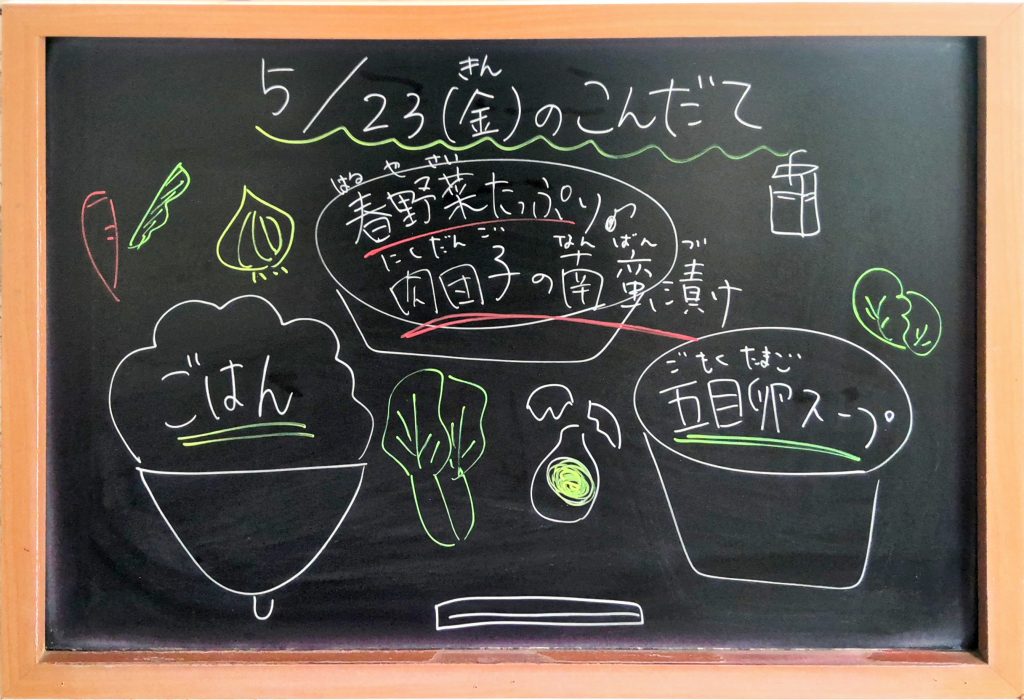 5/23(金)のこんだて
きん
はるやさい
春野菜たっぷり♪
にくだんご なんばんづ
肉団子の南蛮漬け
ごはん
ごもくたまご
五目卵スープ